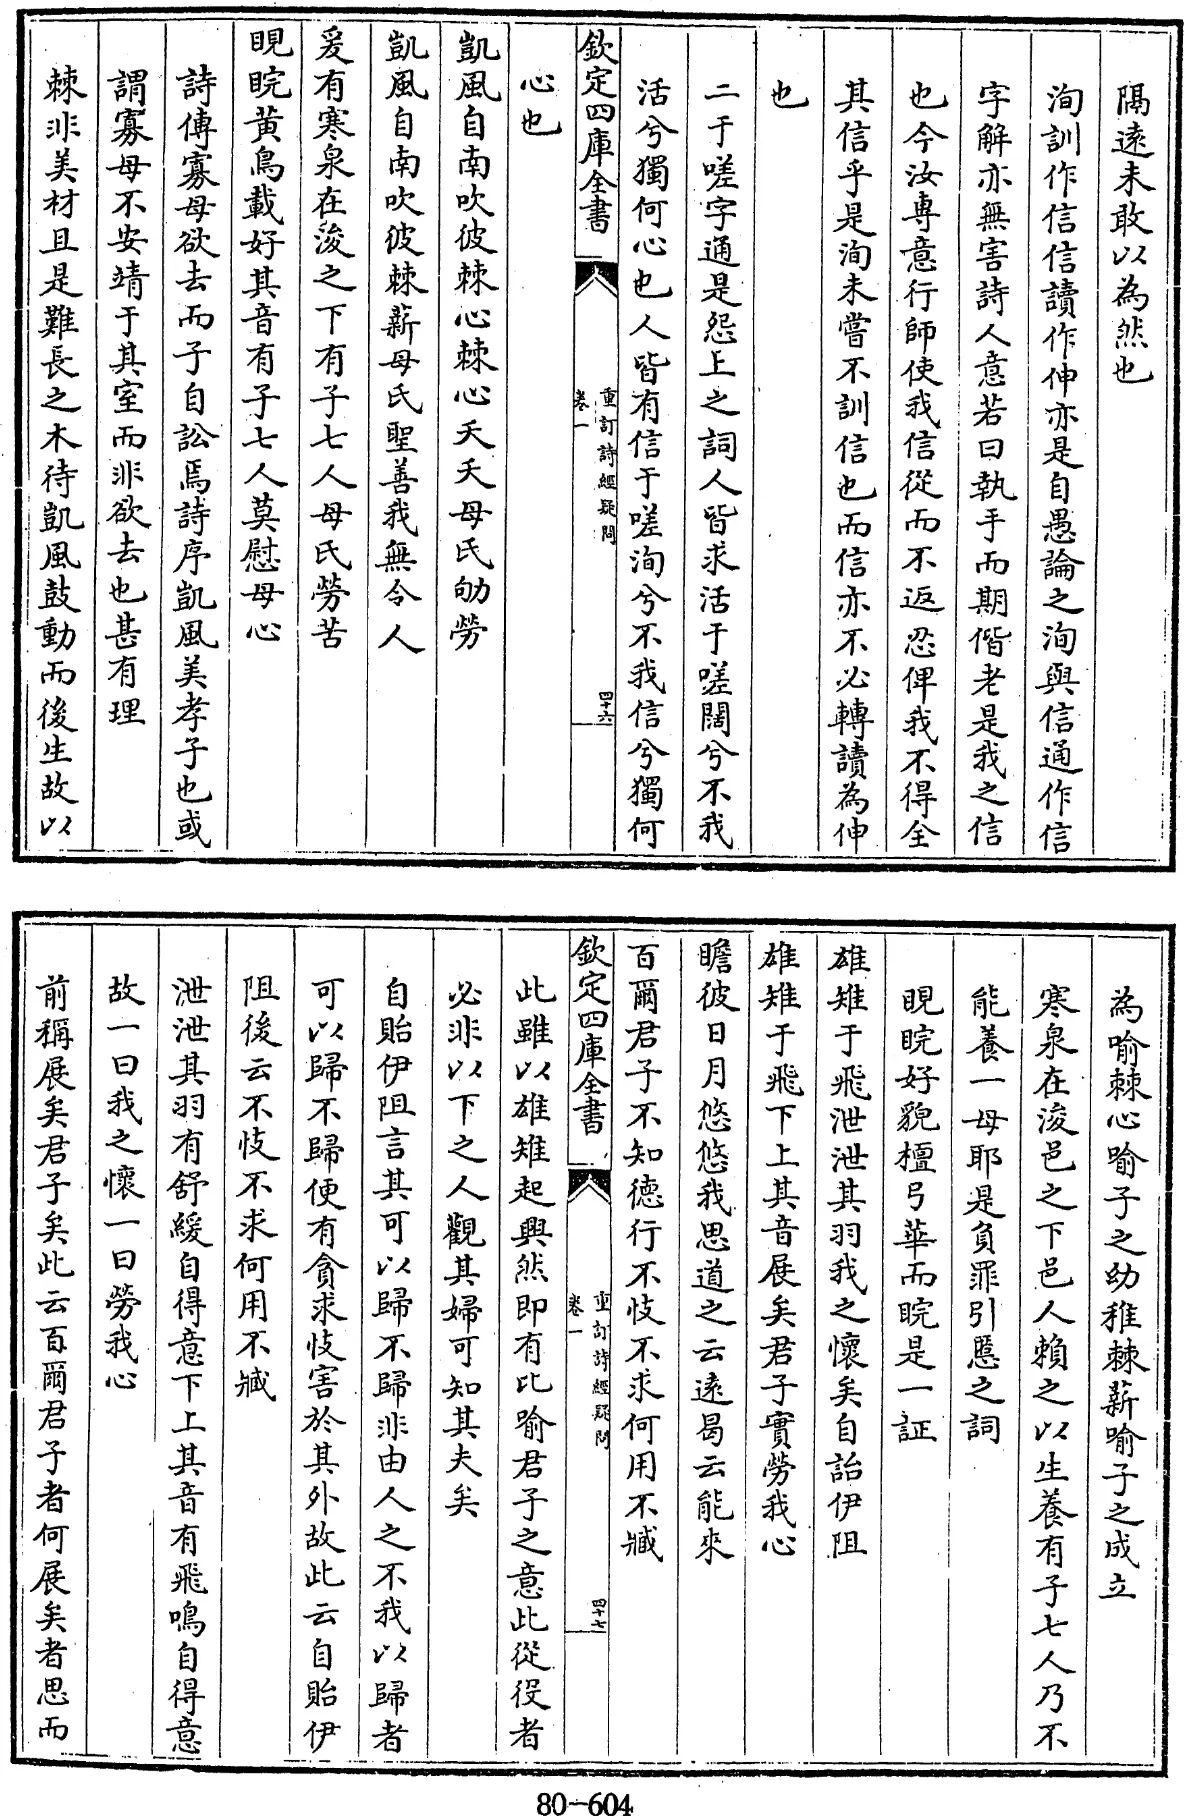 隔遠未敢以為然也
洵訓作信信讀作伸亦是自愚論之洵與信通作信
字解亦無害詩人意若曰執手而期偕老是我之信
也今汝專意行師使我信從而不返忍俾我不得全
其信乎是洵未嘗不訓信也而信亦不必轉讀為伸
也
二于嗟字通是怨上之詞人皆求活于嗟闊兮不我
活兮獨何心也人皆有信于嗟洵兮不我信兮獨何
欽定四庫全書
重訂詩經疑問
卷一
四十六
心也
凱風自南吹彼棘心棘心夭夭母氏劬勞
凱風自南吹彼棘薪母氏聖善我無令人
爰有寒泉在浚之下有子七人母氏勞苦
睍睆黃鳥載好其音有子七人莫慰母心
詩傳寡母欲去而子自訟焉詩序凱風美孝子也或
謂寡母不安靖于其室而非欲去也甚有理
棘非美材且是難長之木待凱風鼓動而後生故以
為喻棘心喻子之幼稚棘薪喻子之成立
寒泉在浚邑之下邑人賴之以生養有子七人乃不
能養一母耶是負罪引慝之詞
睍睆好貌檀弓華而睆是一証
雄雉于飛泄泄其羽我之懷矣自詒伊阻
雄雉于飛下上其音展矣君子實勞我心
瞻彼日月悠悠我思道之云遠曷云能來
百爾君子不知德行不忮不求何用不臧
欽定四庫全書
重訂詩經疑問
卷一
四十七
此雖以雄雉起興然即有比喻君子之意此從役者
必非以下之人觀其婦可知其夫矣
自貽伊阻言其可以歸不歸非由人之不我以歸者
可以歸不歸便有貪求忮害於其外故此云自貽伊
阻後云不忮不求何用不臧
泄泄其羽有舒緩自得意下上其音有飛鳴自得意
故一曰我之懷一曰勞我心
前稱展矣君子矣此云百爾君子者何展矣者思而
80-604